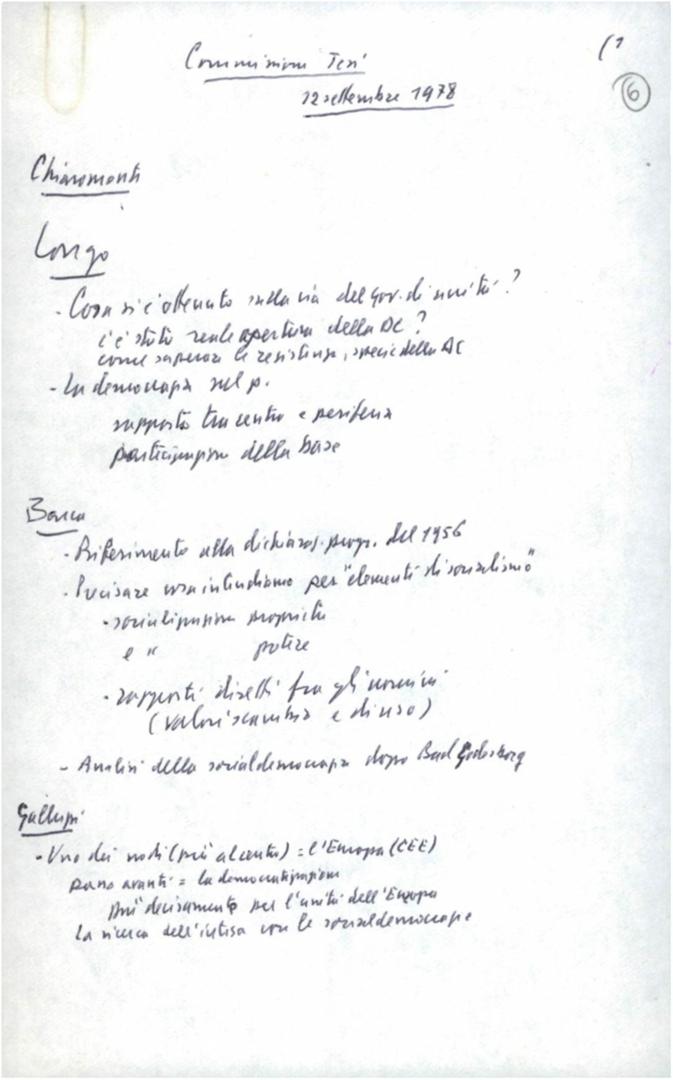 Commissione Tesi
12 settembre 1978
6
Chiaromonte
Longo
- Cosa si è ottenuto sulla via del gov. di unità?
c'è stata reale apertura della DC?
come superare le resistenze, specie della DC
- La democrazia nel p.
rapporto tra centro e periferia
partecipazione della base
Barca
- Riferimento alla dichiaraz. progr. del 1956
- Precisare cosa intendiamo per "elementi di socialismo"
- socializzazione proprietà
e " potere
- rapporti diretti fra gli uomini
(valori scambio e di uso)
- Analisi della socialdemocrazia dopo Bad Godesberg
Galluzzi
- Uno dei nodi (più al centro) = l'Europa (CEE)
passo avanti = la democratizzazione
più decisamente per l'unità dell'Europa
La ricerca dell'intesa con le socialdemocrazie